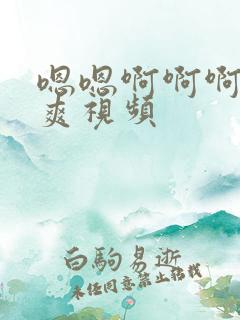 嗯嗯啊啊啊
爽視頻
白駒易逝
未經同意禁止轉載